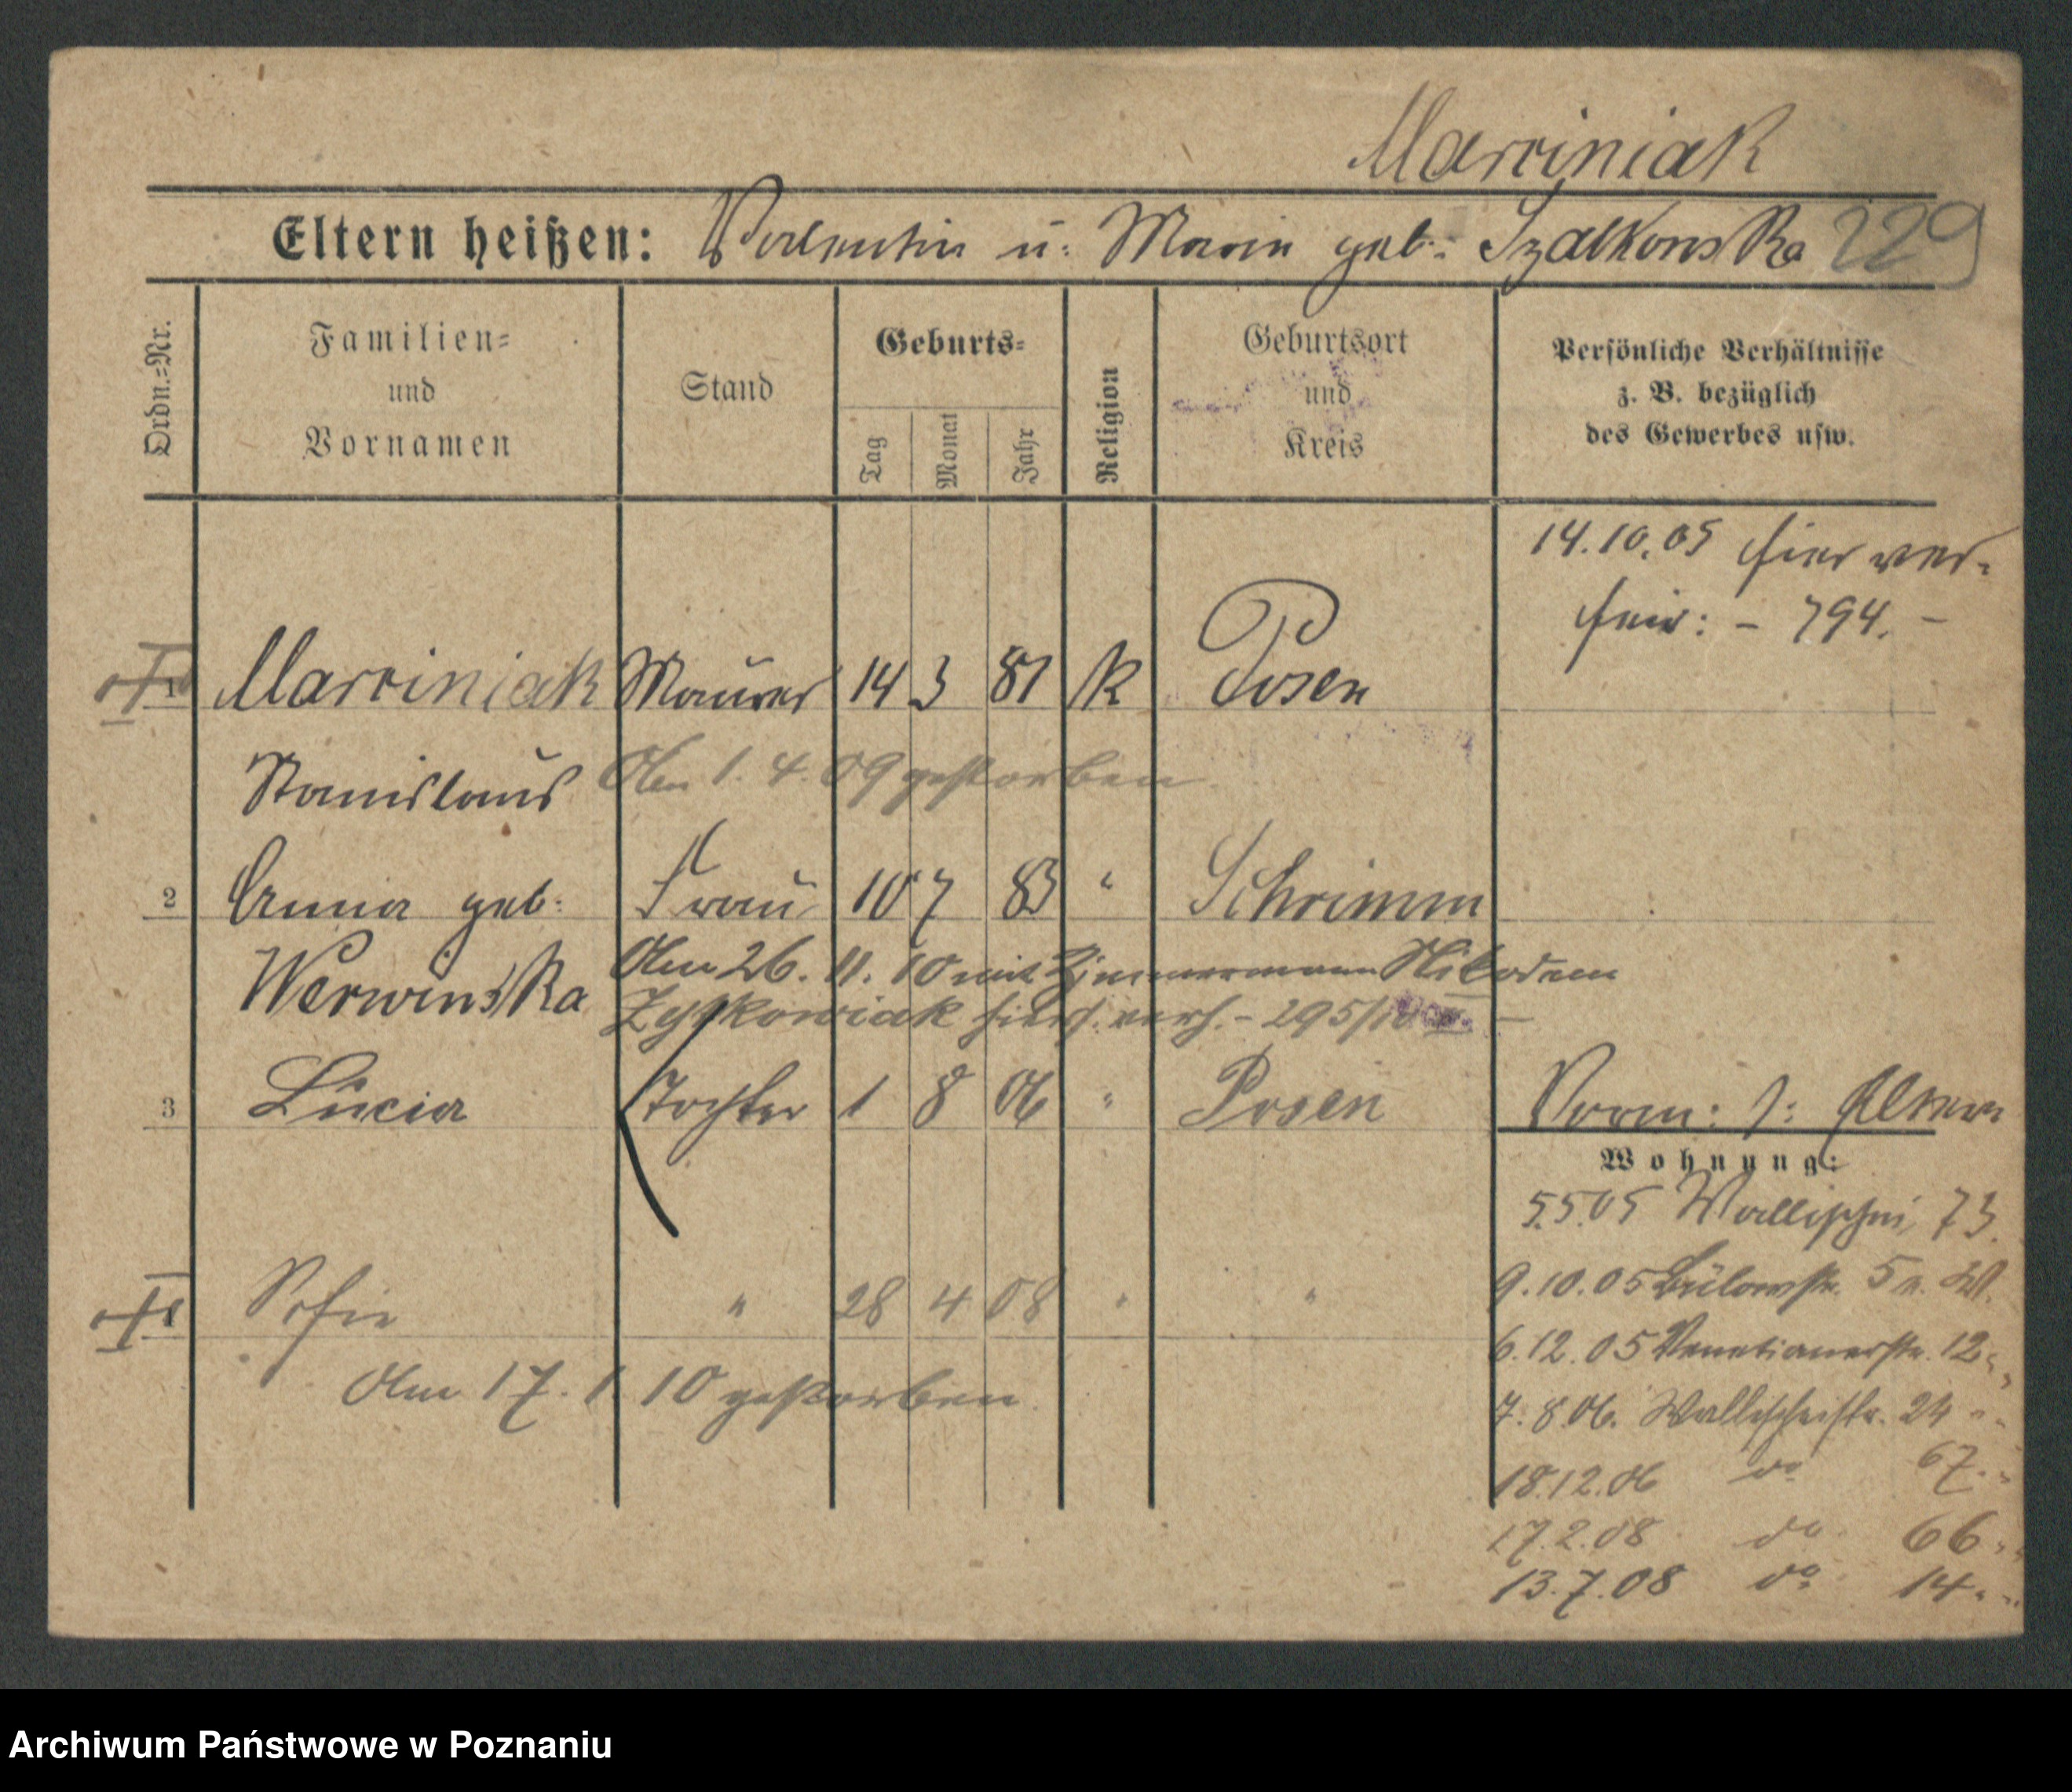 Marciniak
Eltern heißen: Valentin u: Maria geb: Szalkowska 229
Ordn.=Nr.
Familien=
und
Vornamen
Stand
Geburts=
Tag
Monat
Jahr
Religion
Geburtsort
und
Kreis
Persönliche Verhältnisse
z. B. bezüglich
des Gewerbes usw.
14.10.05 hier ver-
heir: - 794. -
1 Marciniak Maurer 14 3 81 K Posen
Stanislaus Am 1. 4. 09 gestorben
2 Anna geb: Frau 10 7 83 " Schrimm
Werwinska Am 26. 11. 10 mit Zimmermann Nikodem
Zyskowiak hiers. verh. - 295/10 -
3 Lucia Tochter 1 8 06 " Posen
Vorm: s: Eltern
Wohnung:
5.5.05 Wallischei 73.
4 Sofie " 28 4 08 " "
Am 17. 1. 10 gestorben.
9.10.05 Bülowstr. 5 b. W.
6.12.05 Venetianerstr. 12 "
7. 8.06. Wallischeistr. 24 "
18.12.06 do 67. "
17.2.08 do 66. "
13.7.08 do 14. "
Archiwum Państwowe w Poznaniu